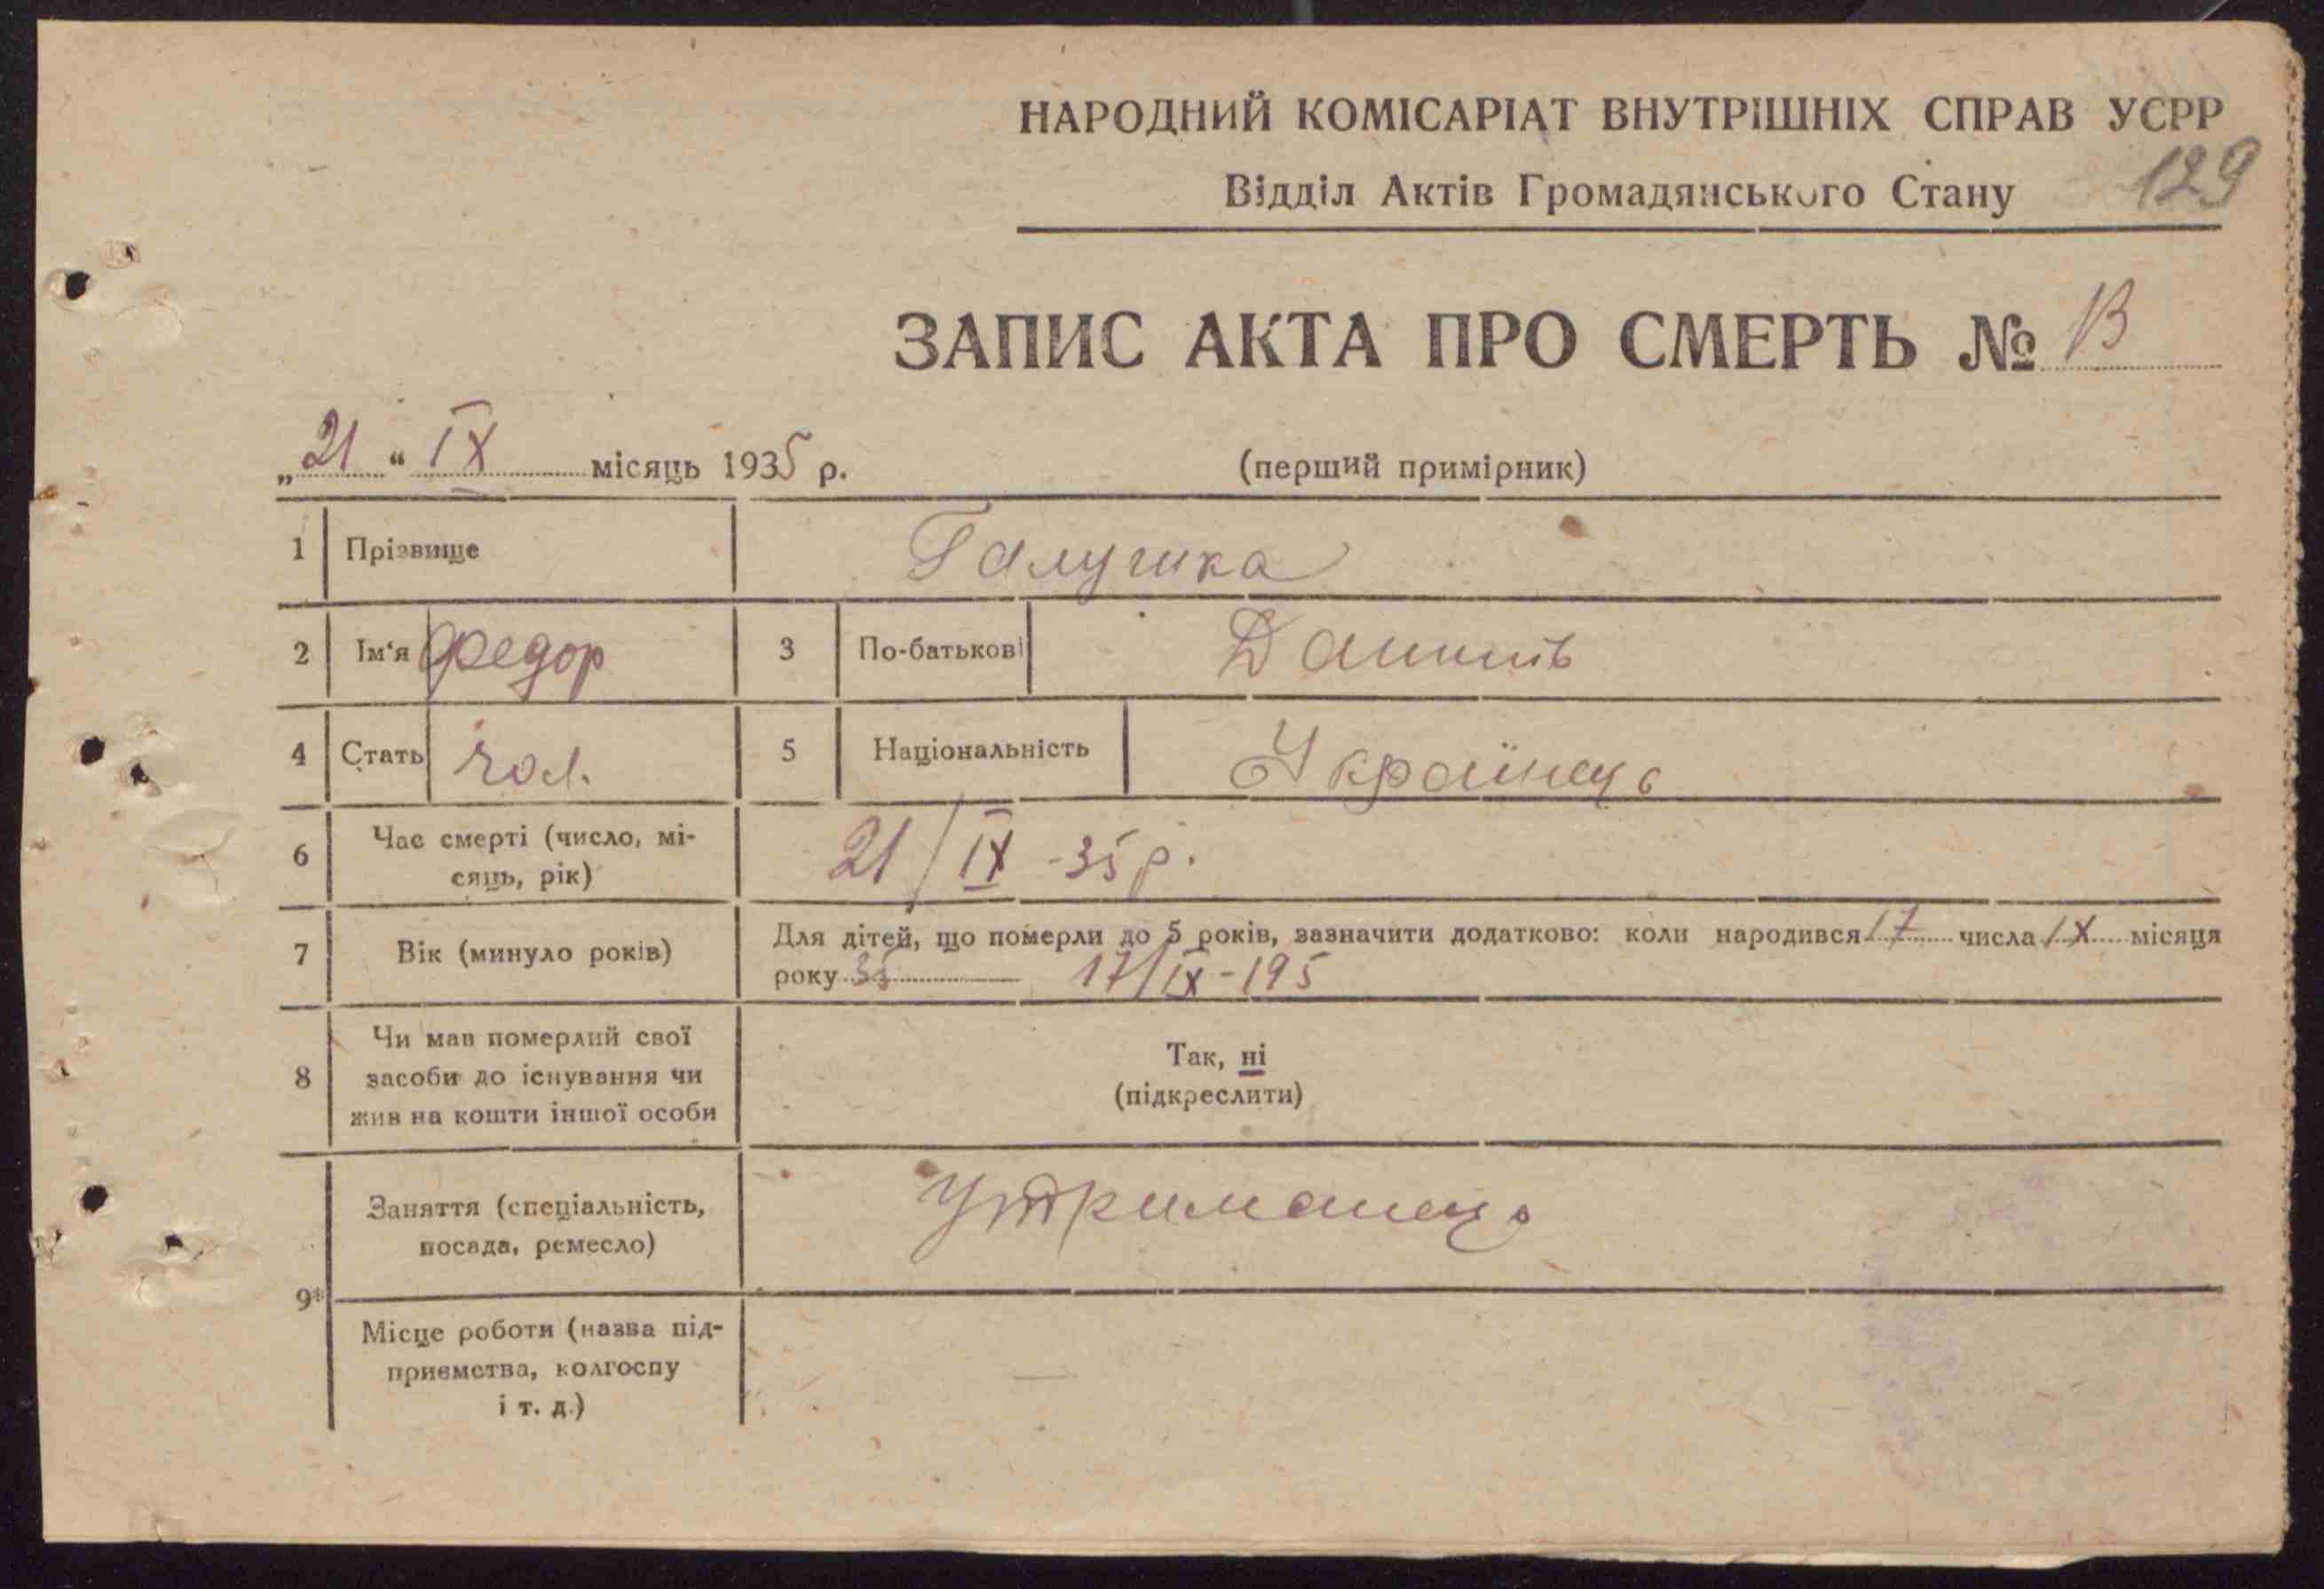 НАРОДНИЙ КОМІСАРІАТ ВНУТРІШНІХ СПРАВ УСРР
Відділ Актів Громадянського Стану
129
ЗАПИС АКТА ПРО СМЕРТЬ № 13
„21“ IX місяць 1935 р.
(перший примірник)
1 Прізвище Галушка
2 Ім‘я Федор 3 По-батькові
4 Стать чол. 5 Національність Українець
6 Час смерті (число, мі-
сяць, рік) 21/IX -35 р.
7 Вік (минуло років) Для дітей, що померли до 5 років, зазначити додатково: коли народився 17 числа IX місяця
року 35 17/IX-195
8 Чи мав померлий свої
засоби до існування чи
жив на кошти іншої особи
Так, ні
(підкреслити)
9* Заняття (спеціальність,
посада, ремесло) Утриманець
Місце роботи (назва під-
приємства, колгоспу
і т. д.)